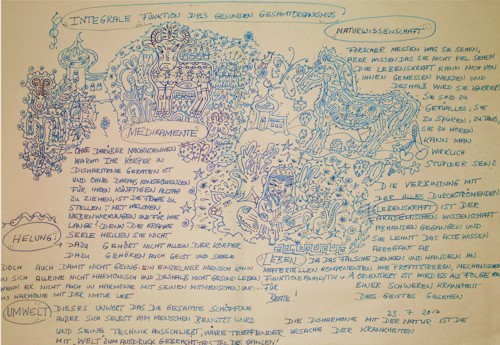 INTEGRALE FUNKTION DES GESUNDEN GESAMTORGANISMUS
NATURWISSENSCHAFT
FORSCHER MESSEN WAS SIE SEHEN,
ABER WISSEN DAS SIE NICHT VIEL SEHEN
DIE LEBENSKRAFT KANN NICH VON
IHNEN GEMESSEN WERDEN UND
DESHALB WIRD SIE IGNORIERT
SIE SIND ZU
GEFÜHLLOS, SIE
ZU SPÜREN, ZU TAUB,
SIE ZU HÖREN
KANN MAN
WIRKLICH
STUPIDER SEIN
MEDIKAMENTE
OHNE DARÜBER NACHZUDENKEN
WARUM IHR KÖRPER IN
DISHARMONIE GERATEN IST
UND OHNE DARAUS KONSEQUENZEN
FÜR IHREN KÜNFTIGEN ALLTAG
ZU ZIEHEN, IST DIE FRAGE ZU
STELLEN: MIT WELCHEN
NEBENWIRKUNGEN UND FÜR WIE
LANGE? DENN DIE KRANKE
SEELE HEILEN SIE NICHT
HEILUNG
DAZU GEHÖRT NICHT ALLEIN DER KÖRPER
DAZU GEHÖREN AUCH GEIST UND SEELE
DOCH AUCH DAMIT NICHT GENUG. EIN EINZELNER MENSCH KANN
IN SICH ALLEINE NICHT HARMONISCH UND DESHALB NICHT GESUND LEBEN
WENN ER NICHT AUCH IN HARMONIE MIT SEINEN MITMENSCHEN UND
IN HARMONIE MIT DER NATUR LEBT
DIE VERBINDUNG MIT
DER ALLES DURCHSTRÖMENDEN
LEBENSKRAFT IST DER
AKADEMISCHEN WISSENSCHAFT
ABHANDEN GEGANGEN UND
SIE LEHNT DAS ALTE WISSEN
ARROGANT AB
LEBEN DA DAS FALSCHE DENKEN UND HANDELN AN
MATERIELLEN KOMPONENTEN WIE PROFITSTREBEN, MECHANISCHER
FUNKTIONSANALYTIK ORIENTIERT IST WIRD ES ALS FOLGE
FÜR EINER SCHWEREN KRANKHEIT
BEATE! DES GEISTES GESEHEN
UMWELT
DIESES UNWORT DAS DIE GESAMTE SCHÖPFUNG
AUẞER SICH SELBST VOM MENSCHEN BENUTZT WIRD
UND SEINE TECHNIK AUSSCHLIEẞT, WÄRE TREFFENDER
MIT „WELT" ZUM AUSDRUCK GEBRACHT ALS TEIL DES GANZEN!
23.7.2017
DIE DISHARMONIE MIT DER NATUR IST DIE
URSACHE DER KRANKHEITEN